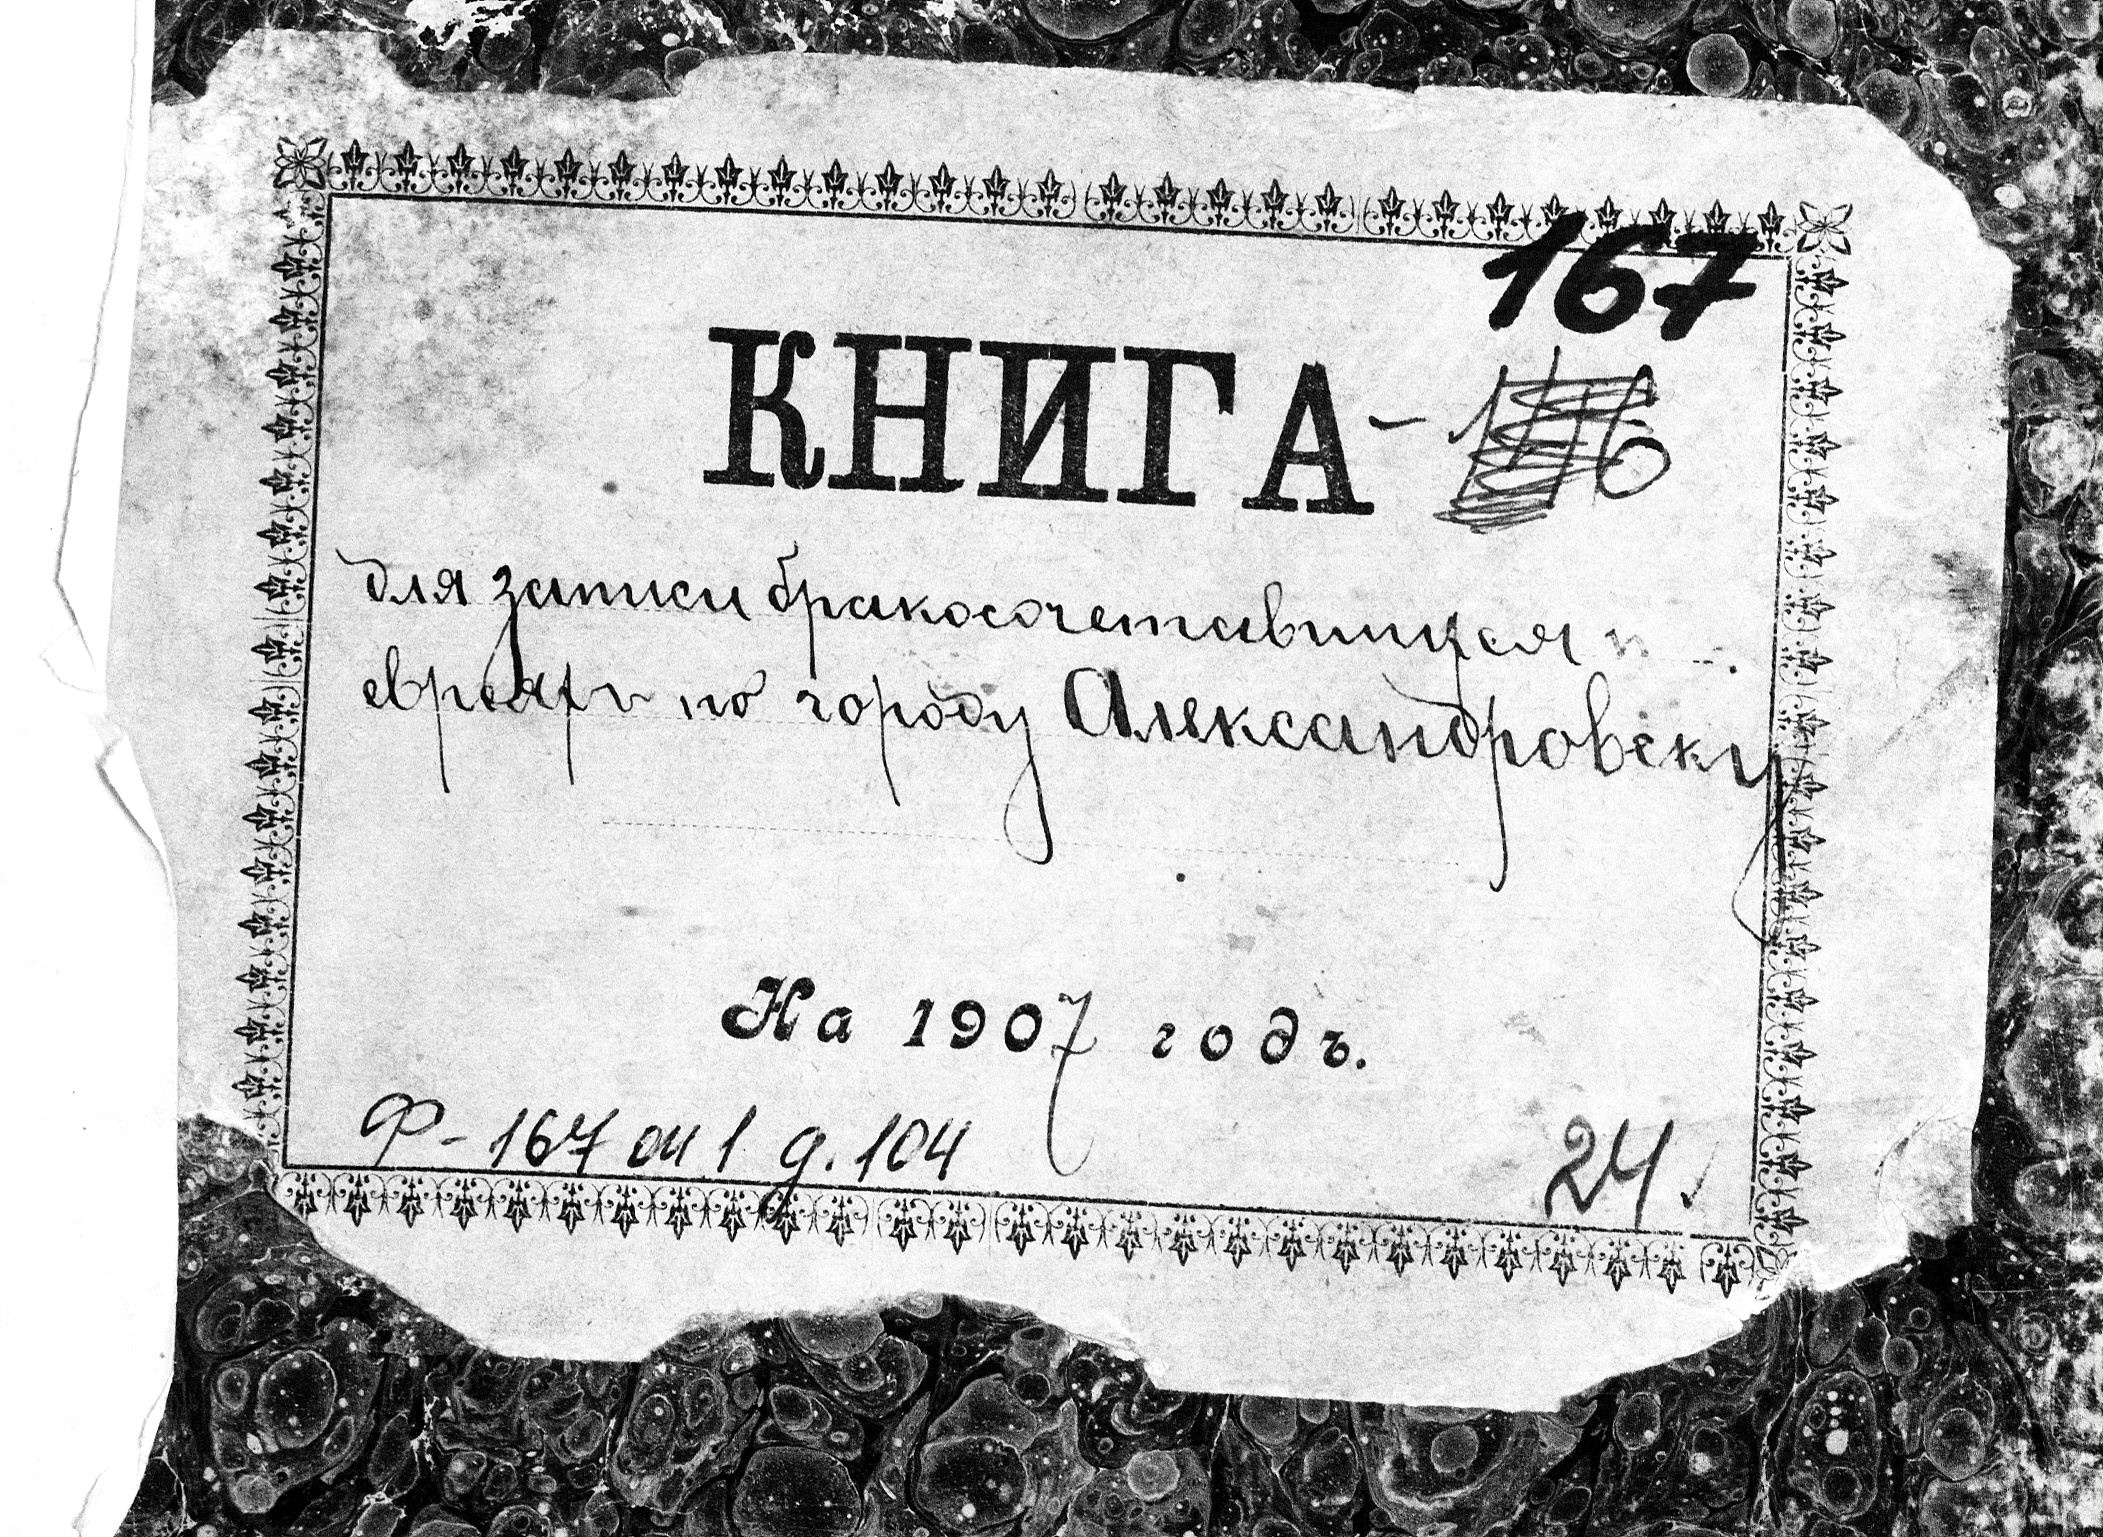 167
КНИГА-
для записи бракосочетавшихся
евреяхъ по городу Александровску
На 1907 годъ.
Ф-167 оп 1 д. 104
24